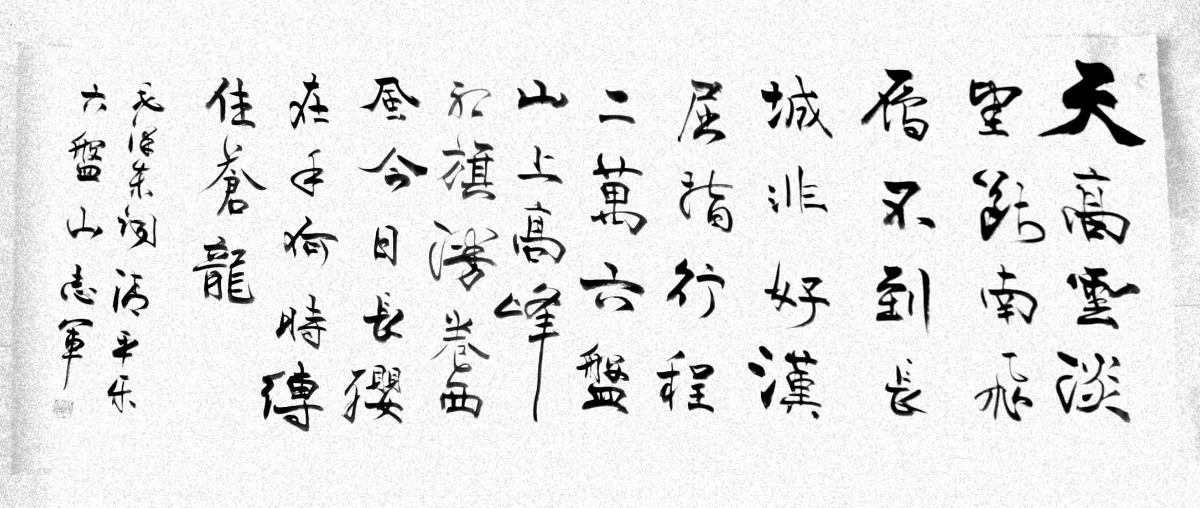 天高雲淡
望斷南飛
雁不到長
城非好漢
屈指行程
二萬六盤
山上高峰
紅旗漫卷西
風今日長纓
在手何時縛
住蒼龍
毛澤東詞清平乐
六盤山志軍